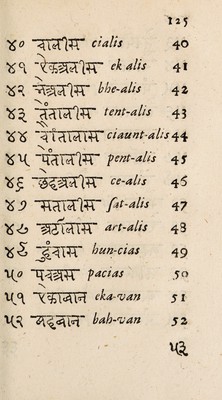 125
४० चालीस cialis 40
४१ ऐकअलीस ek alis 41
४२ बेअलीस bhe-alis 42
४३ तेंतालीस tent-alis 43
४४ चौंतालास ciaunt-alis 44
४५ पेंतालीस pent-alis 45
४६ छहअलीस ce-alis 46
४७ सतालीस sat-alis 47
४८ अर्ठालास art-alis 48
४९ हुंचास hun-cias 49
५० पचअस pacias 50
५१ ऐकावान eka-van 51
५२ बहवान bah-van 52
५३